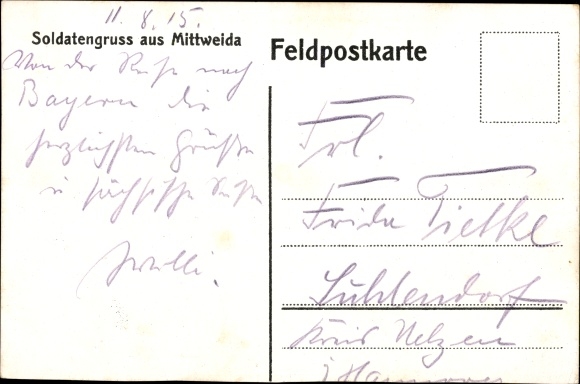 11. 8. 15.
Soldatengruss aus Mittweida
Von der Reise nach
Bayern die
herzlichsten Grüße
u sächsische
Willi.
Feldpostkarte
Frl.
Frida Tietke
Suhlendorf
Kreis Uelzen
i/Hannover